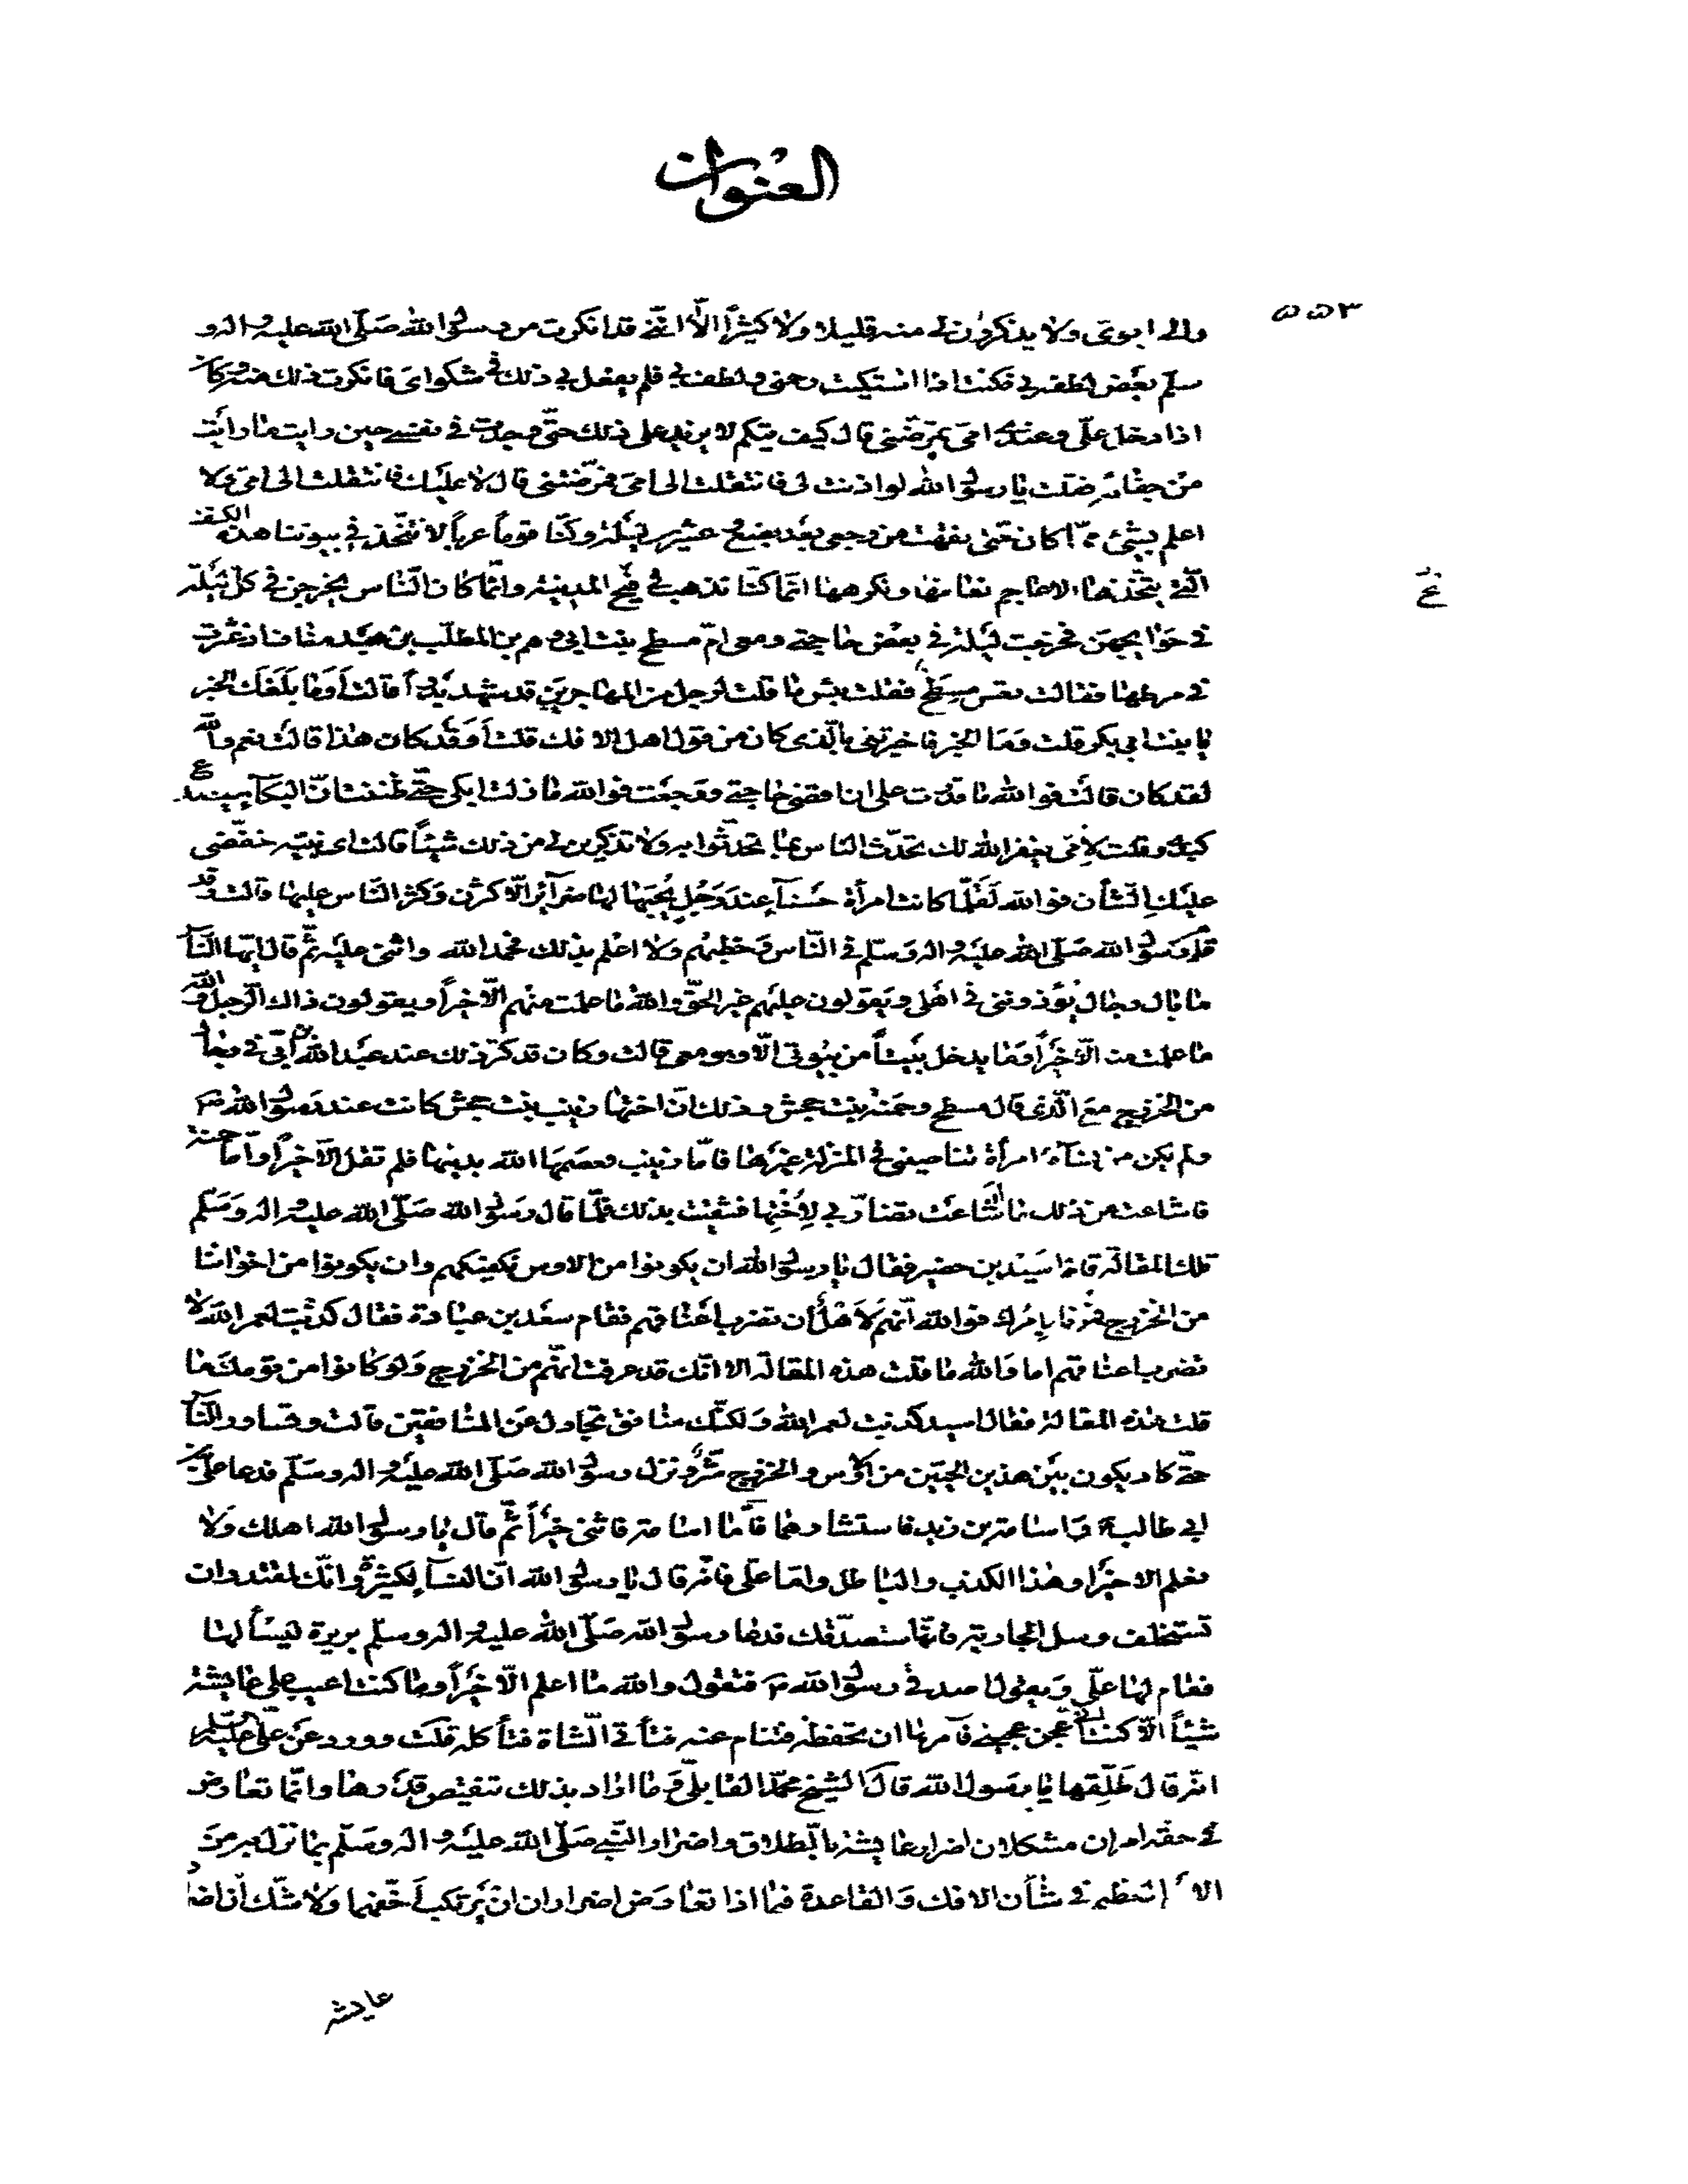 العنوان
٥٥٣
والى ابوى ولا يذكرون لى منه قليلا ولا كثيرا الا انى قد انكرت من رسول الله صلى الله عليه واله و
سلم بعض لطفه بى فكنت اذا اشتكيت رحمنى ولطف بى فلم يفعل بى ذلك فى شكواى فانكرت ذلك منه وكان
اذا دخل على وعندى امى تمرضنى قال كيف تيكم لا يزيد على ذلك حتى وجدت فى نفسى حين رايت ما رايت
من جفائه فقلت يا رسول الله لو اذنت لى فانتقلت الى امى فمرضتنى قال لا عليك فانتقلت الى امى ولا
اعلم بشئ مما كان حتى نقهت من وجعى بعد بضع وعشرين ليلة وكنا قوما عربا لا نتخذ فى بيوتنا هذه الكنف
التى يتخذها الاعاجم نعافها ونكرهها انما كنا نذهب فى فيح المدينة وانما كان الناس يخرجن فى كل ليلة
فى حوايجهن فخرجت ليلة فى بعض حاجتى ومعى ام مسطح بنت ابى رهم بن المطلب بن عبد مناف اذ عثرت
فى مرطها فقالت تعس مسطح فقلت بئس ما قلت لرجل من المهاجرين قد شهد بدرا قالت أوما بلغك الخبر
يا بنت ابى بكر قلت وما الخبر فاخبرتنى بالذى كان من قول اهل الافك قلت أوقد كان هذا قالت نعم والله
لقد كان قالت فوالله ما قدرت على ان اقضى حاجتى ورجعت فوالله ما زلت ابكى حتى ظننت ان البكاء سيصدع
كبدى وقلت لامى يغفر الله لك تحدث الناس بما تحدثوا به ولا تذكرين لى من ذلك شيئا قالت اى بنية خفضى
عليك الشأن فوالله لقلما كانت امرأة حسناء عند رجل يحبها لها ضرائر الا كثرن وكثر الناس عليها قالت وقد
قام رسول الله صلى الله عليه واله وسلم فى الناس فخطبهم ولا اعلم بذلك فحمد الله واثنى عليه ثم قال ايها الناس
ما بال رجال يؤذوننى فى اهلى ويقولون عليهم غير الحق والله ما علمت منهم الا خيرا ويقولون ذاك الرجل والله
ما علمت منه الا خيرا وما يدخل بيتا من بيوتى الا وهو معى قالت وكان قد كثر ذلك عند عبد الله بن ابى فى رجال
من الخزرج مع الذى قال مسطح وحمنة بنت جحش وذلك ان اختها زينب بنت جحش كانت عند رسول الله ص
ولم يكن من نسائه امرأة تناصينى فى المنزلة غيرها فاما زينب فعصمها الله بدينها فلم تقل الا خيرا واما حمنة
فاشاعت من ذلك ما اشاعت تضاد بى لاختها فشقيت بذلك فلما قال رسول الله صلى الله عليه واله وسلم
تلك المقالة قام اسيد بن حضير فقال يا رسول الله ان يكونوا من الاوس نكفيكهم وان يكونوا من اخواننا
من الخزرج فمرنا بامرك فوالله انهم لاهل أن تضرب اعناقهم فقام سعد بن عبادة فقال كذبت لعمر الله لا
تضرب اعناقهم اما والله ما قلت هذه المقالة الا انك قد عرفت انهم من الخزرج ولو كانوا من قومك ما
قلت هذه المقالة فقال اسيد كذبت لعمر الله ولكنك منافق تجادل عن المنافقين قالت وتساور الناس
حتى كاد يكون بين هذين الحيين من الاوس والخزرج شر ونزل رسول الله صلى الله عليه واله وسلم فدعا على بن
ابى طالب واسامة بن زيد فاستشارهما فاما اسامة فاثنى خيرا ثم قال يا رسول الله اهلك ولا
نعلم الا خيرا وهذا الكذب والباطل واما على فانه قال يا رسول الله ان النساء لكثيرة وانك لمقتدر ان
تستخلف وسل الجارية فانها ستصدقك فدعا رسول الله صلى الله عليه واله وسلم بريرة ليسألها
فقام لها على ويقول اصدقى رسول الله ص فتقول والله ما اعلم الا خيرا وما كنت اعيب على عايشة
شيئا الا كنت أعجن عجينى فآمرها ان تحفظه فتنام عنه فتأتى الشاة فتأكله قلت وورد عن على عليه السلم
انه قال طلقها يا رسول الله قال الشيخ محمد القابلى وما اراد بذلك تنقيص قدرها وانما تعارض
فى حقه امران مشكلان اضرار عايشة بالطلاق واضرار النبى صلى الله عليه واله وسلم بما نزل به من
الامر العظيم فى شأن الافك والقاعدة فيما اذا تعارض اضراران ان يرتكب أخفهما ولا شك أن اضرار
عايشة